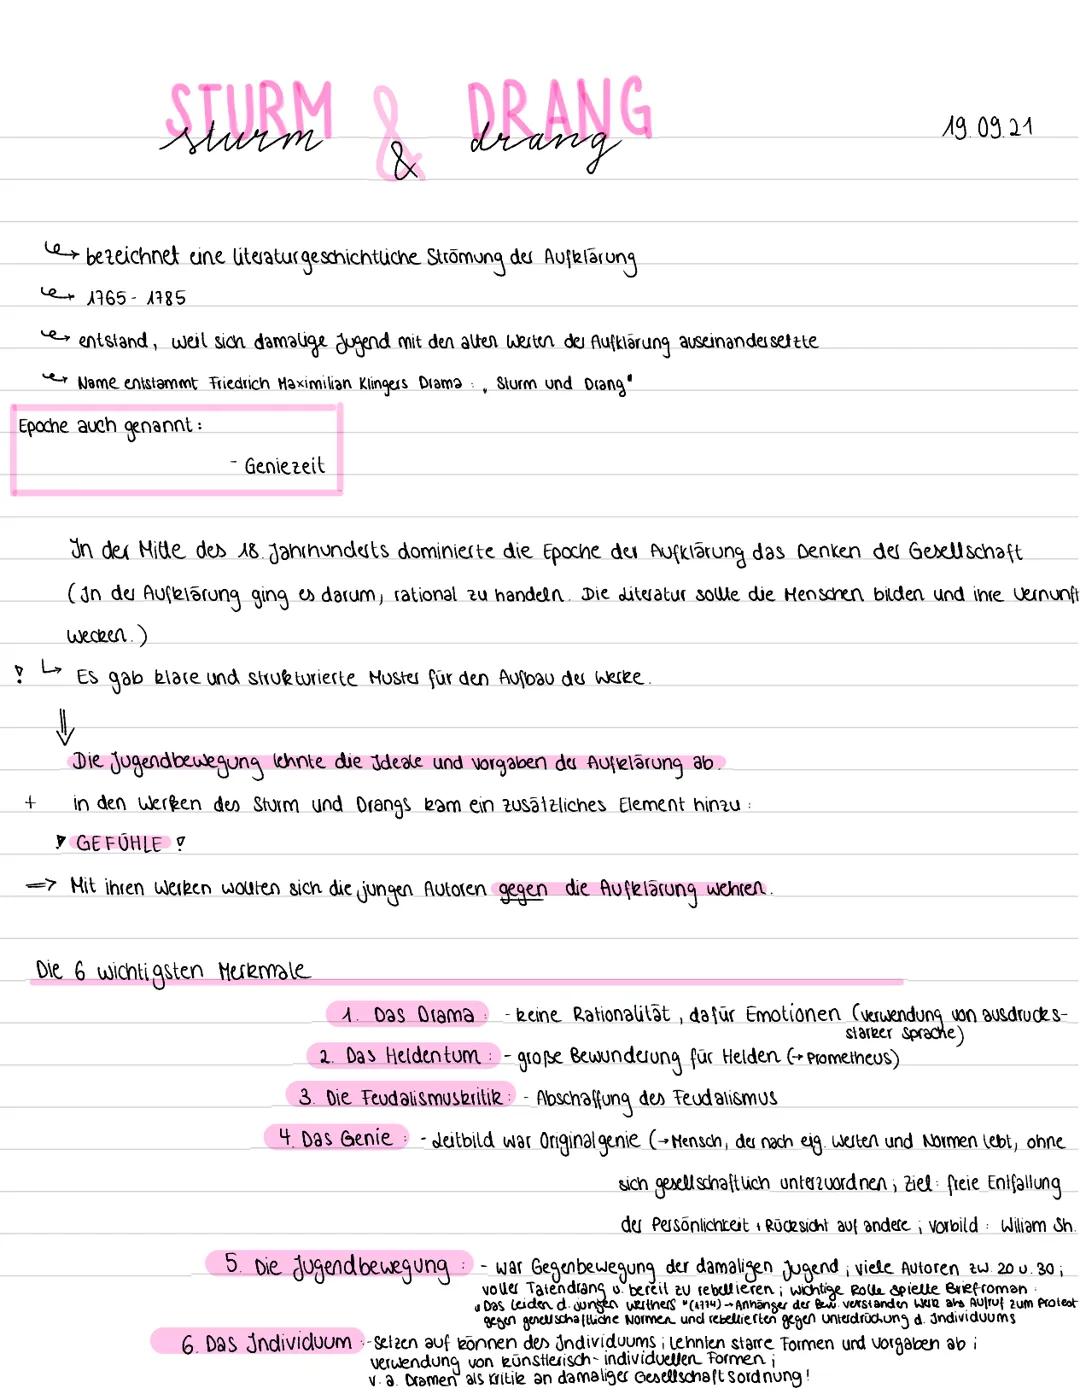 STURM & DRANG
sturm & drang
19.09.21
bezeichnet eine literaturgeschichtliche Strömung der Aufklärung
1765 - 1785
entstand, weil sich damalige Jugend mit den alten Werten der Aufklärung auseinandersetzte
Name entstammt Friedrich Maximilian Klingers Drama : „Sturm und Drang"
Epoche auch genannt :
- Geniezeit
In der Mitte des 18. Jahrhunderts dominierte die Epoche der Aufklärung das Denken der Gesellschaft
(In der Aufklärung ging es darum, rational zu handeln. Die Literatur sollte die Menschen bilden und ihre Vernunft
wecken.)
! ↳ Es gab klare und strukturierte Muster für den Aufbau der Werke.
⇓
Die Jugendbewegung lehnte die Ideale und Vorgaben der Aufklärung ab.
+ in den Werken des Sturm und Drangs kam ein zusätzliches Element hinzu :
! GEFÜHLE !
=> Mit ihren Werken wollten sich die jungen Autoren gegen die Aufklärung wehren.
Die 6 wichtigsten Merkmale
1. Das Drama : - keine Rationalität, dafür Emotionen (Verwendung von ausdrucks-
starker Sprache)
2. Das Heldentum : - große Bewunderung für Helden (→ Prometheus)
3. Die Feudalismuskritik : - Abschaffung des Feudalismus
4. Das Genie : - Leitbild war Originalgenie (→ Mensch, der nach eig. Werten und Normen lebt, ohne
sich gesellschaftlich unterzuordnen ; Ziel : freie Entfaltung
der Persönlichkeit + Rücksicht auf andere ; Vorbild : Wiliam Sh.
5. Die Jugendbewegung : - war Gegenbewegung der damaligen Jugend ; viele Autoren zw. 20 u. 30 ;
voller Tatendrang u. bereit zu rebellieren ; wichtige Rolle spielte Briefroman
„Das Leiden d. jungen Werthers "(1774) → Anhänger der Bew. verstanden Werk als Aufruf zum Protest
gegen gesellschaftliche Normen und rebellierten gegen Unterdrückung d. Individuums
6. Das Individuum : - setzen auf können des Individuums ; lehnten starre Formen und Vorgaben ab ;
Verwendung von künstlerisch- individuellen Formen ;
v. a. Dramen als Kritik an damaliger Gesellschaftsordnung!